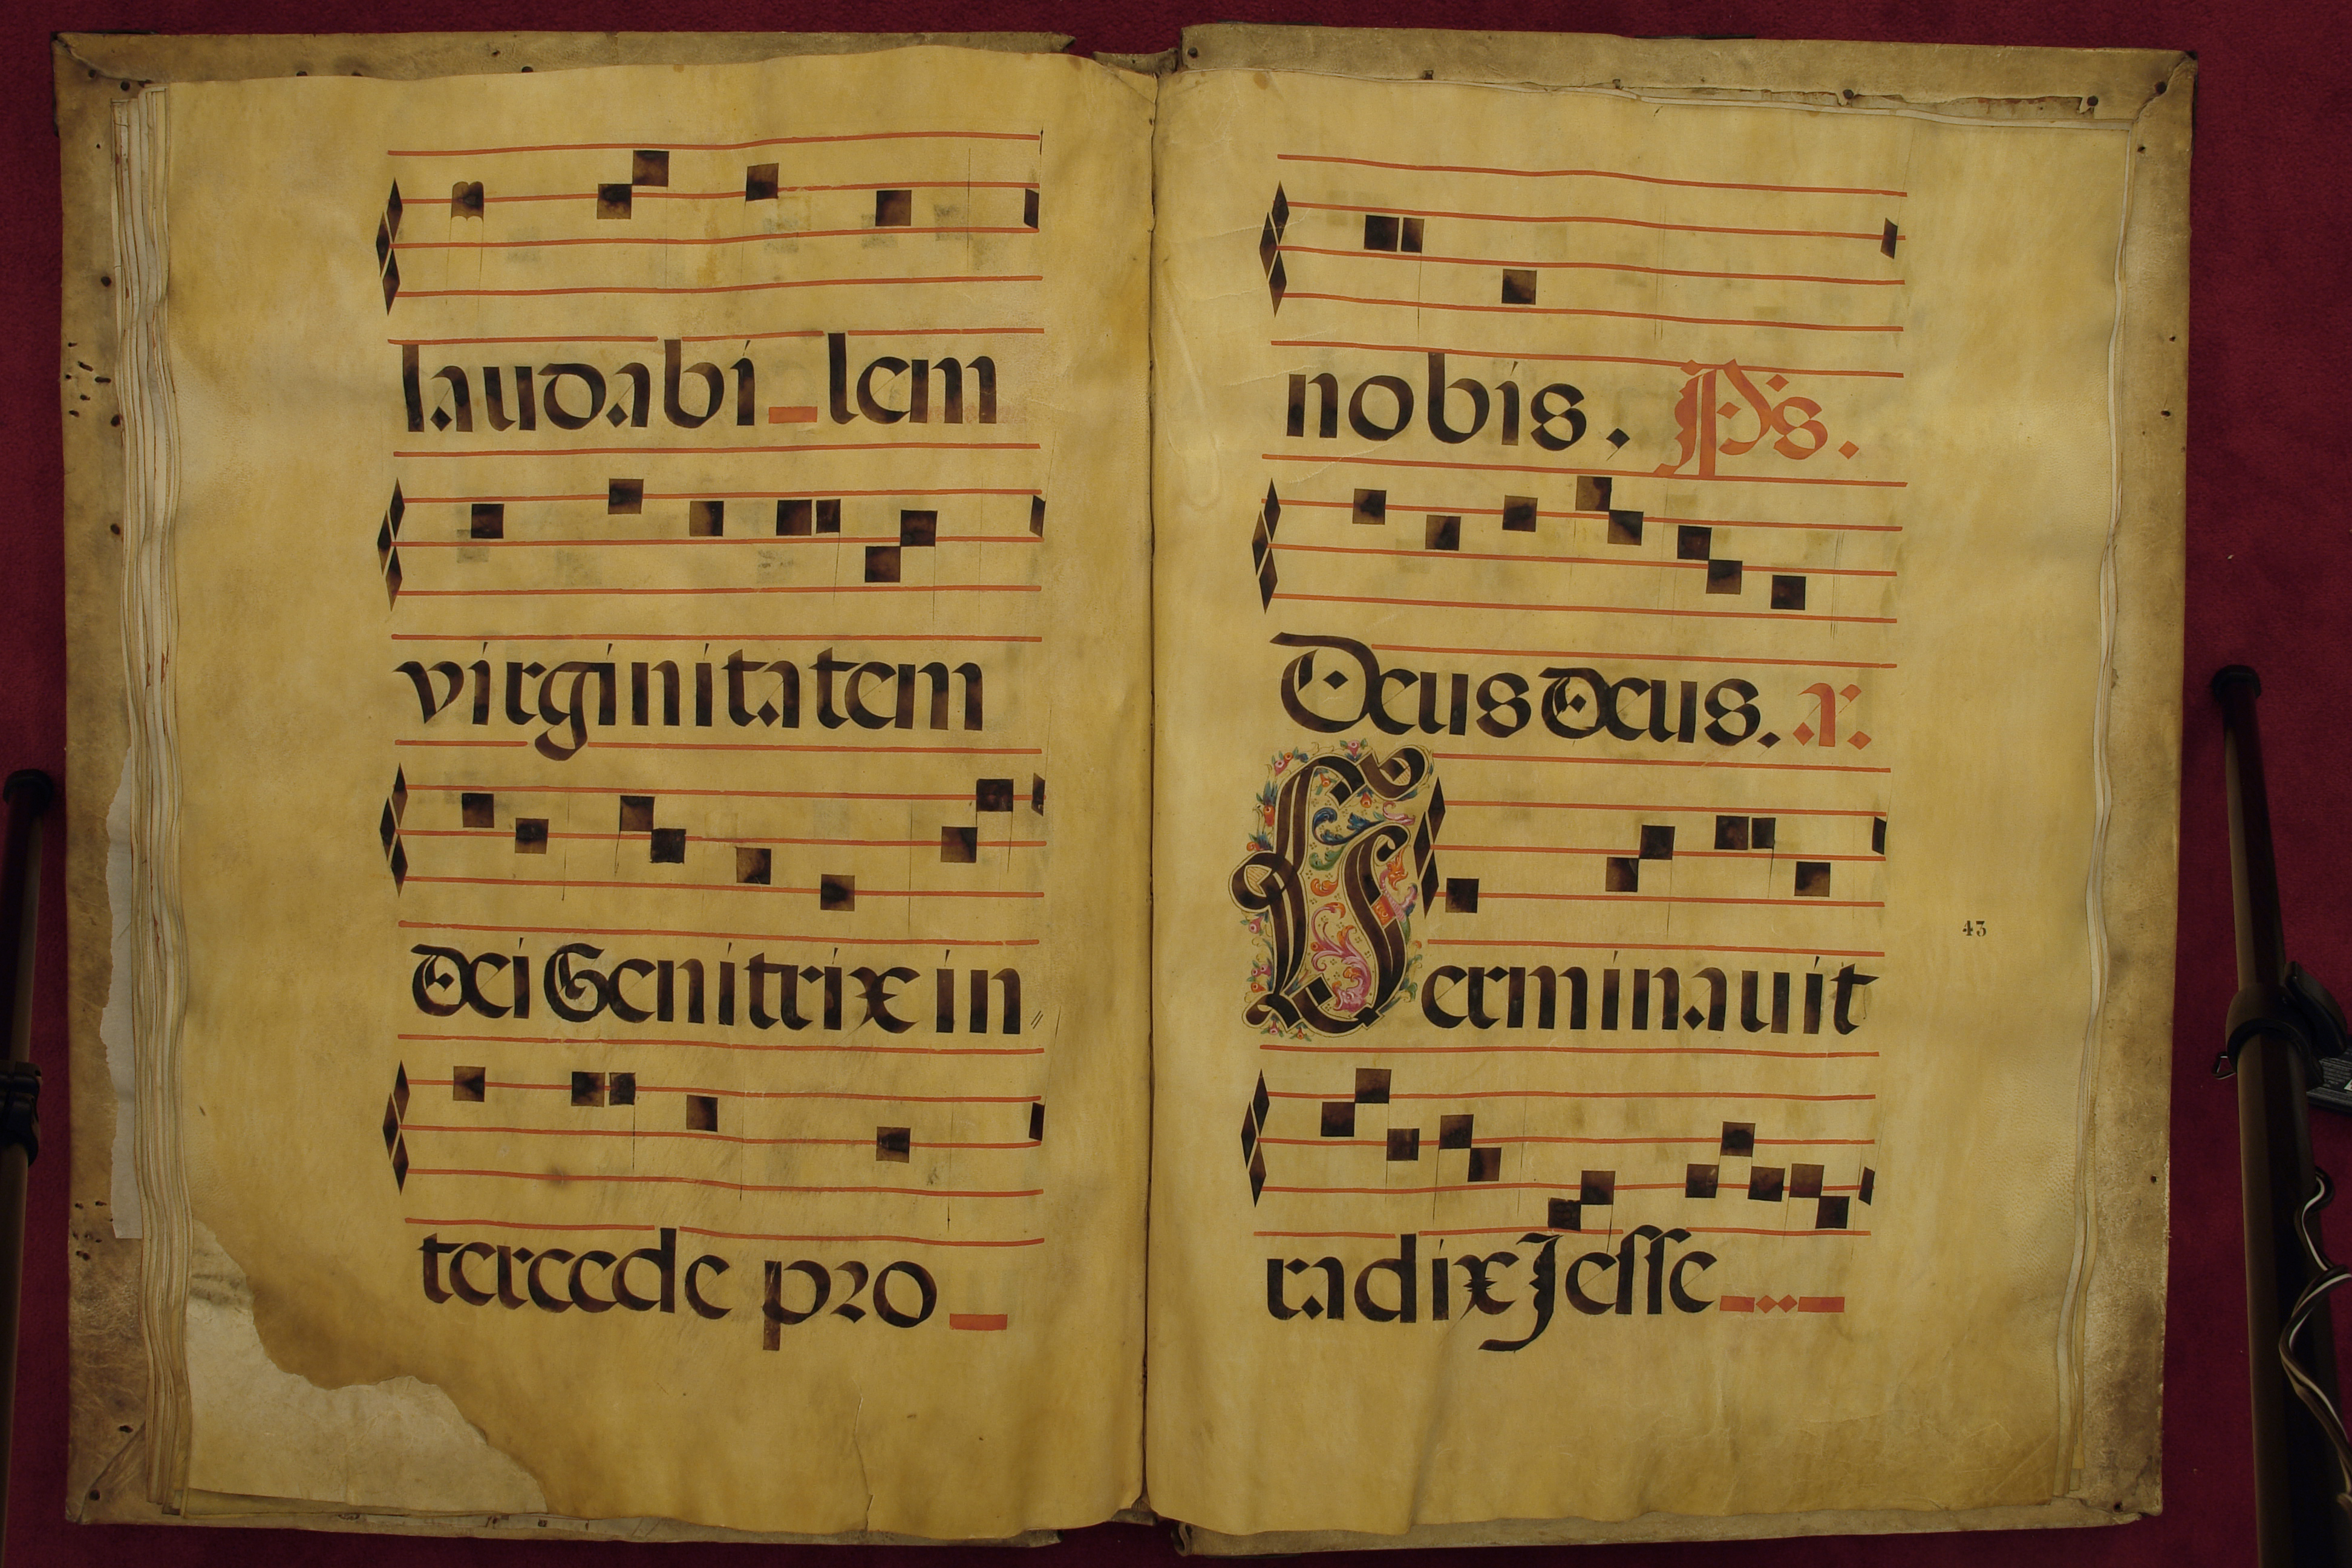 laudabi_lem
virginitatem
Dei Genitrix in
tercede pro_
nobis. Ps.
Deus Deus. a.
Germinauit
radix Jesse
43